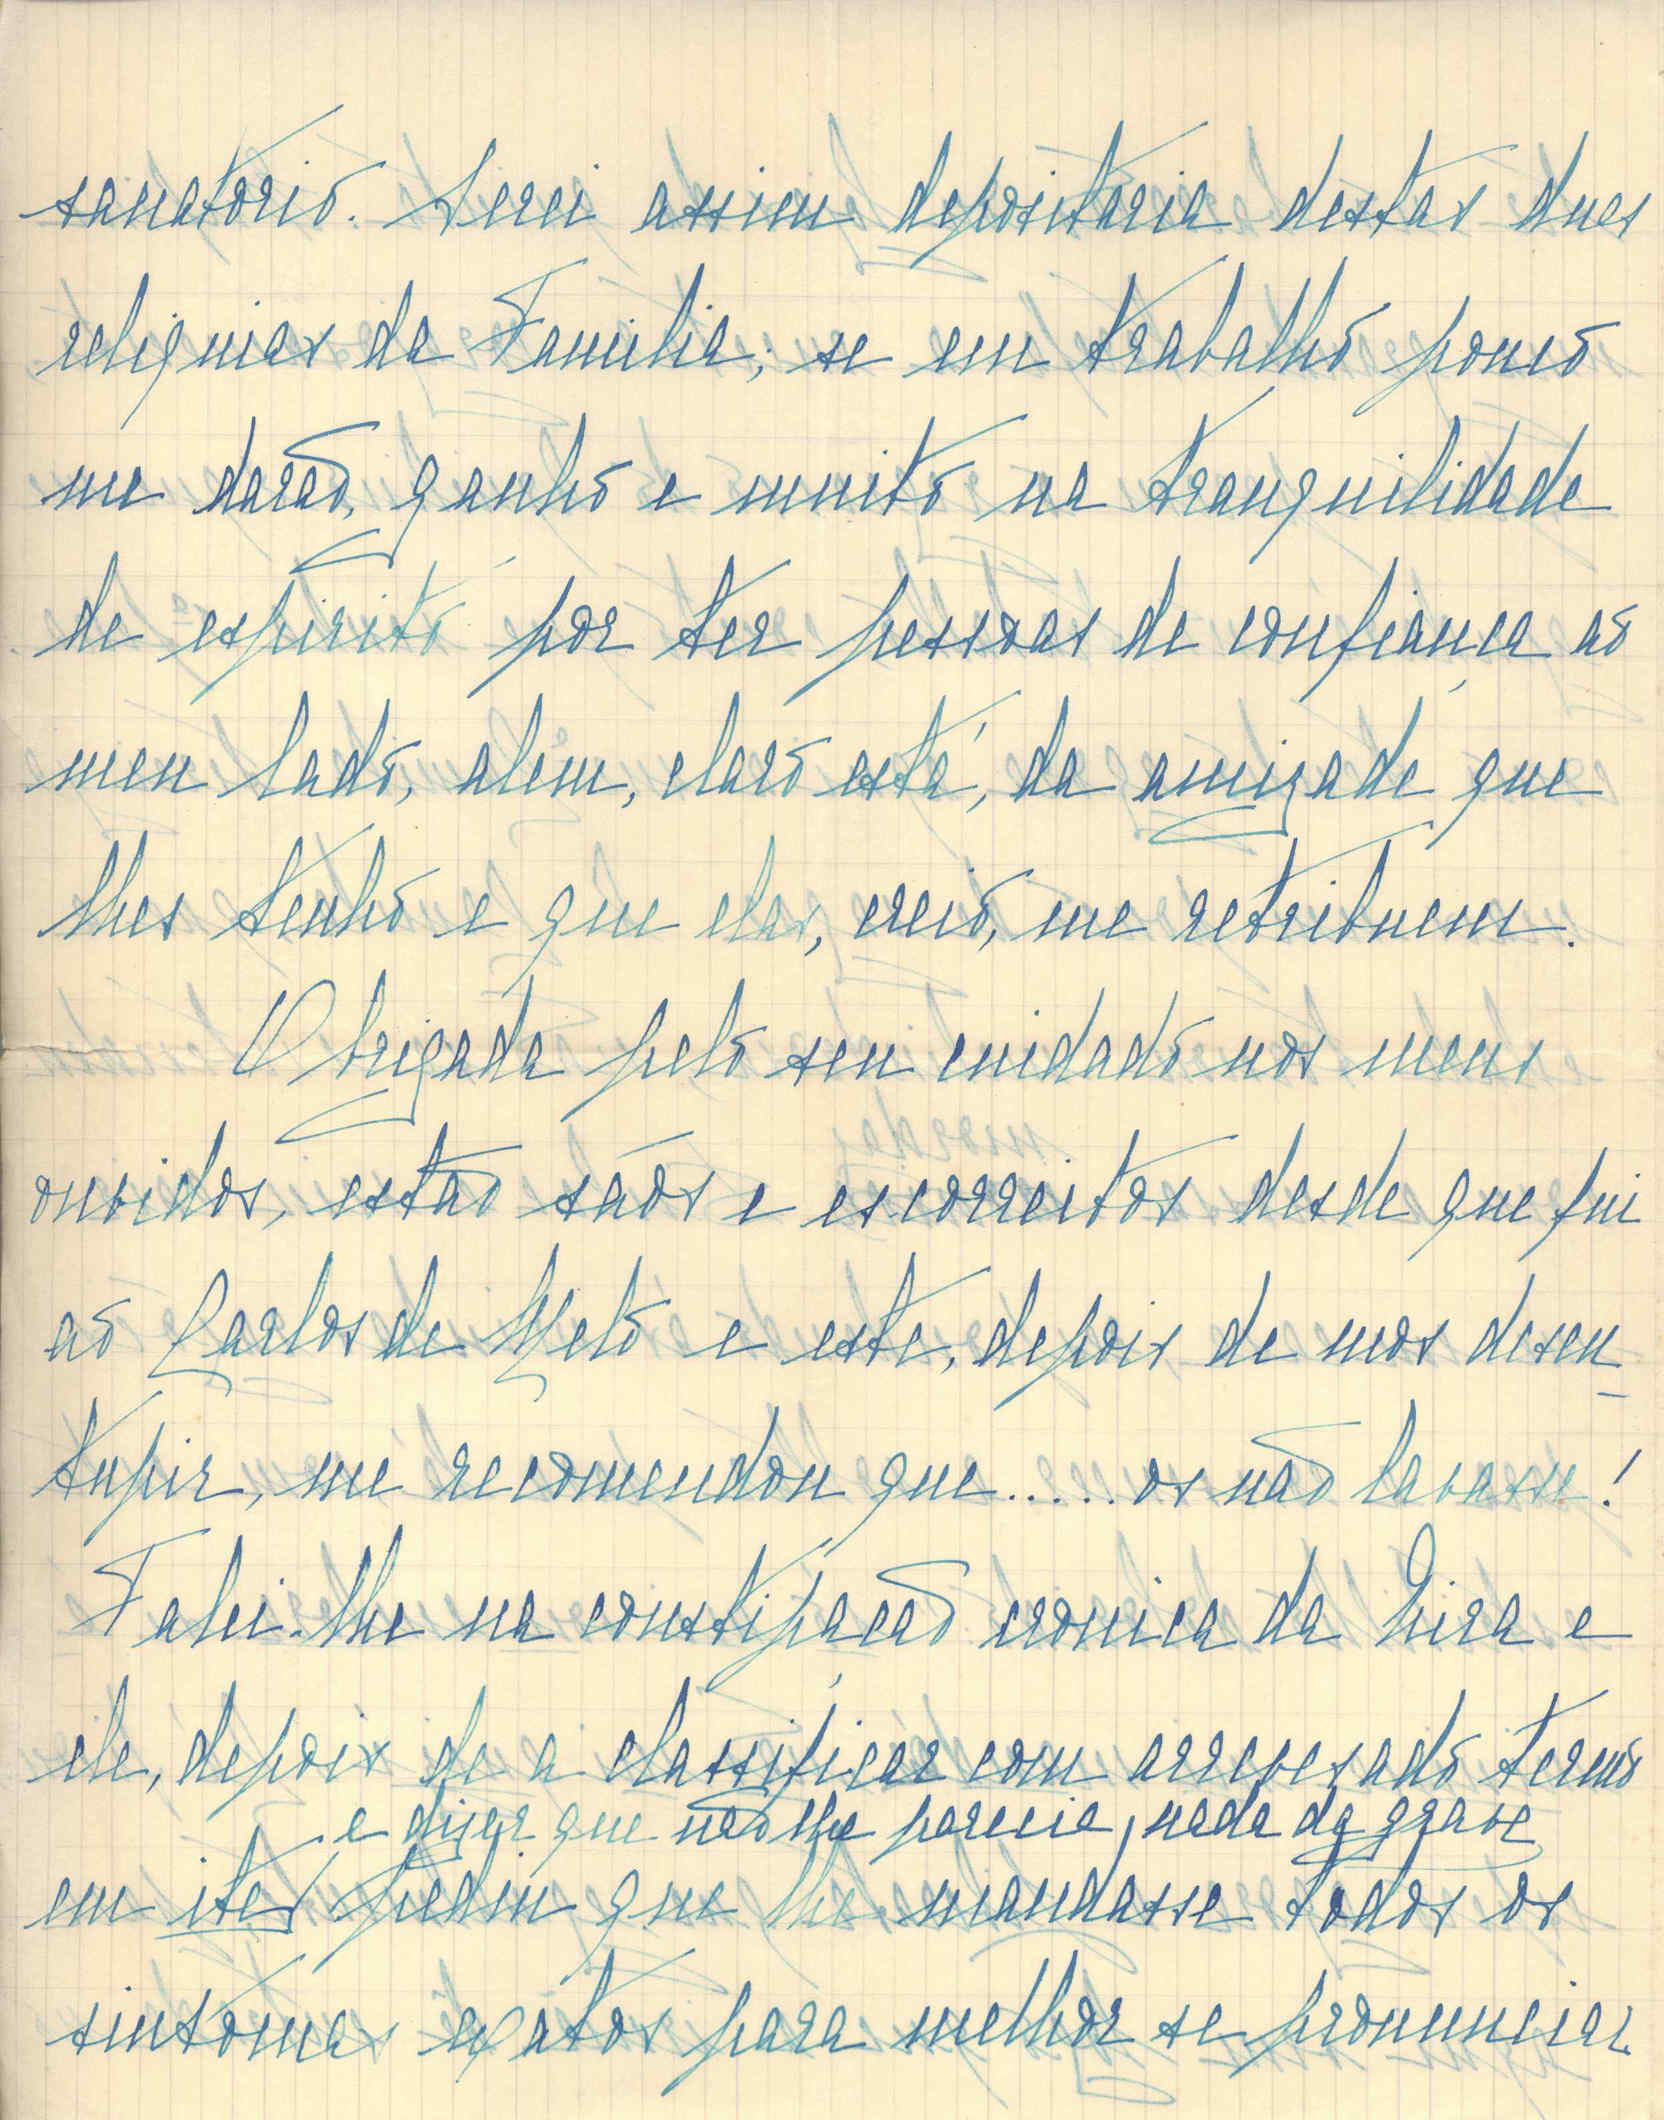 sanatorio. Serei assim depositaria destas duas
reliquias da Familia; se em trabalho pouco
me darão, ganho e muito na tranquilidade
de espirito por ter pessoas de confiança ao
meu lado, alem, claro está, da amizade que
lhes tenho e que elas, creio, me retribuem.
Obrigada pelo seu cuidado nos meus
ouvidos, estão sãos e escorreitos desde que fui
ao Carlos de Melo e este, depois de mos desen-
tupir, me recomendou que ..... os não lavasse!
Falei-lhe na constipação cronica da Lira e
ele, depois de a classificar com arrevesado termo
e dizer que não lhe parecia nada de grave
em ites pediu que lhe mandasse todos os
sintomas exatos para melhor se pronunciar.